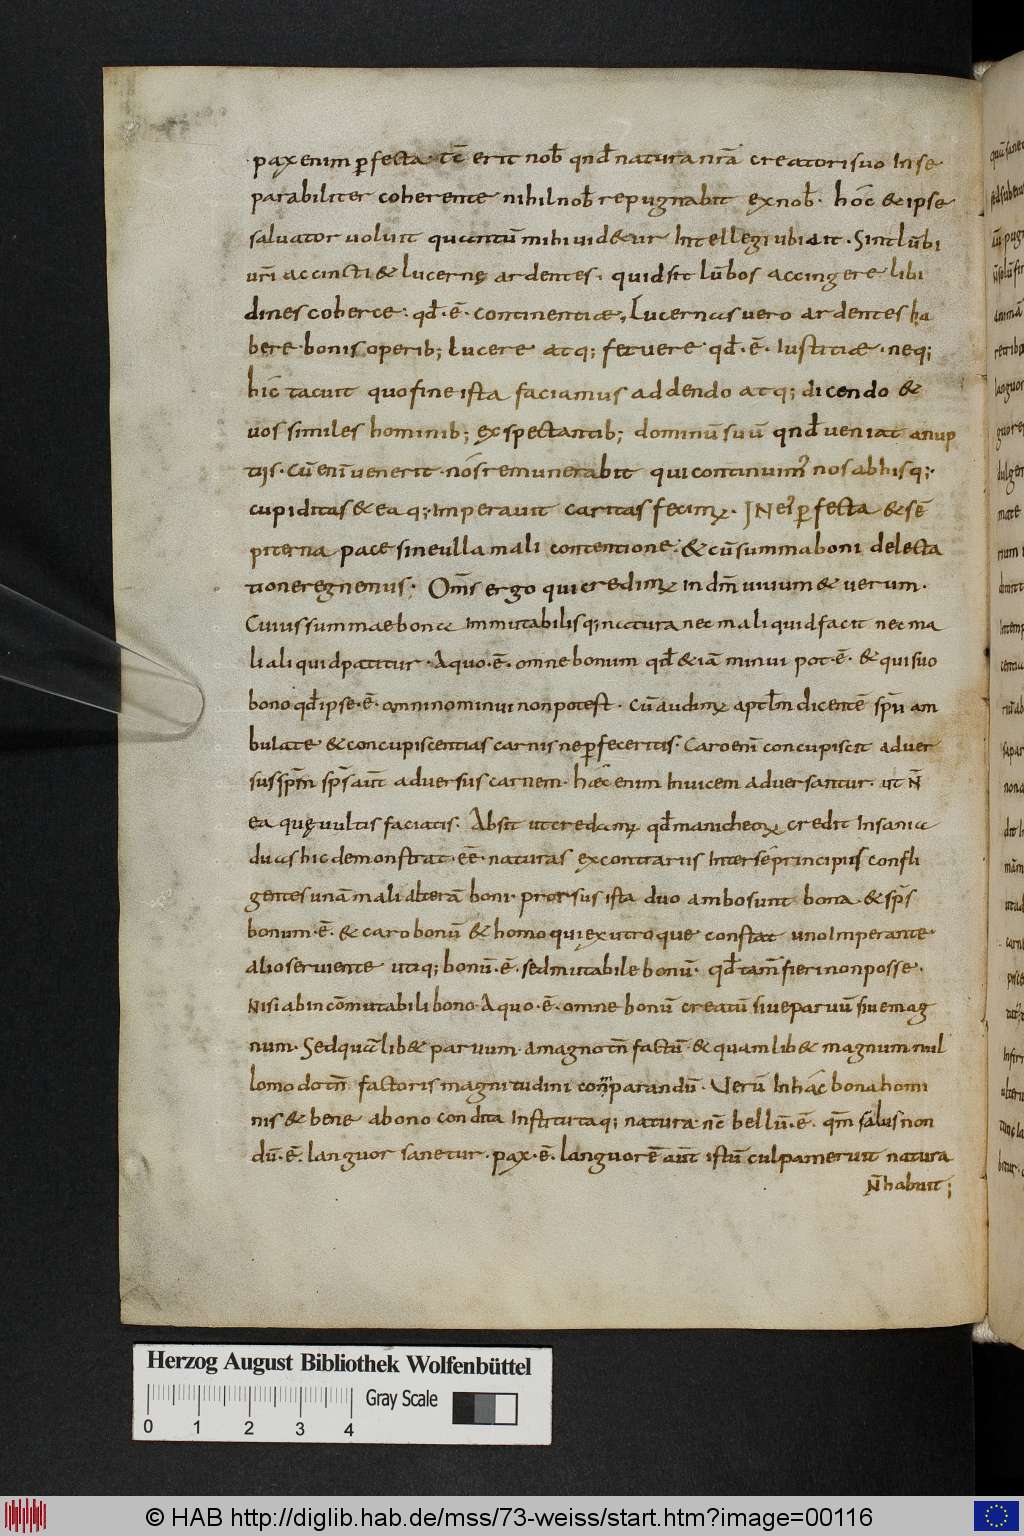 pax enim p̄fecta tc̄ erit nob̄ qnd̄ natura nr̄a creatori suo Inse
parabiliter coherente nihil nob̄ repugnabit ex nob̄. hoc̄ & ipse
saluator uoluit quantū mihi uid&ur Intellegi ubi ait. Sint lūbi
ur̄i accincti & lucernę ardentes. quid sit lūbos accingere libi
dines coherce. qd̄.ē. continentiae, Lucernas uero ardentes ha
bere bonis operib; lucere atq; feruere qd̄.ē. Iustitiae. neq;
hic̄ tacuit quo fine ista faciamus addendo atq; dicendo &
uos similes hominib; exspectantib; dominū suū qnd̄ ueniat a nup
tiis. Cū enī uenerit. nos remunerabit qui continuim' nos ab his q;
cupiditas & ea q; Imperauit caritas fecimꝰ. IN ei' p̄fecta & sē
piterna pace sine ulla mali contentione. & cū summa boni delecta
tione regnemus. Om̄s ergo qui credimꝰ in dm̄ uiuum & uerum.
Cuius summae bonae Immutabilisq; natura nec mali quid facit nec ma
li aliquid patitur. A quo.ē. omne bonum qd̄ & iā minui pot.ē. & qui suo
bono qd̄ ipse.ē. omnino minui non potest. Cū audimꝰ aptl̄m dicentē sp̄u am
bulate & concupiscentias carnis ne p̄feceritis. Caro enī concupiscit aduer
sus sp̄m sp̄s aut̄ aduersus carnem. haec̄ enim Inuicem aduersantur. ut N̄
ea quę uultis faciatis. Absit ut credamꝰ qd̄ manicheorꝰ credit Insania
duas hic demonstrat.ēē. naturas ex contrariis Inter se principiis confli
gentes unā mali alterā boni. prorsus ista duo ambo sunt bona. & sp̄s
bonum.ē. & caro bonū & homo qui ex utroque constat uno Imperante.
alio seruiente utiq; bonū.ē. sed mutabile bonū. qd̄ tam̄ fieri non posse.
Nisi ab incōmutabili bono. A quo.ē. omne bonū creatū siue paruū siue mag
num. Sed quālib& paruum. a magno tn̄ factū. & quamlib& magnum nul
lo modo tn̄ factoris magnitudini conparandū. Verū In hac̄ bona homi
nis & bene a bono condita Institutaq; natura nc̄ bellū.ē. qm̄ salus non
dū.ē. languor sanetur. pax.ē. languorē aut̄ istū culpa meruit natura
N̄ habuit;
Herzog August Bibliothek Wolfenbüttel
0 1 2 3 4
Gray Scale
© HAB http://diglib.hab.de/mss/73-weiss/start.htm?image=00116